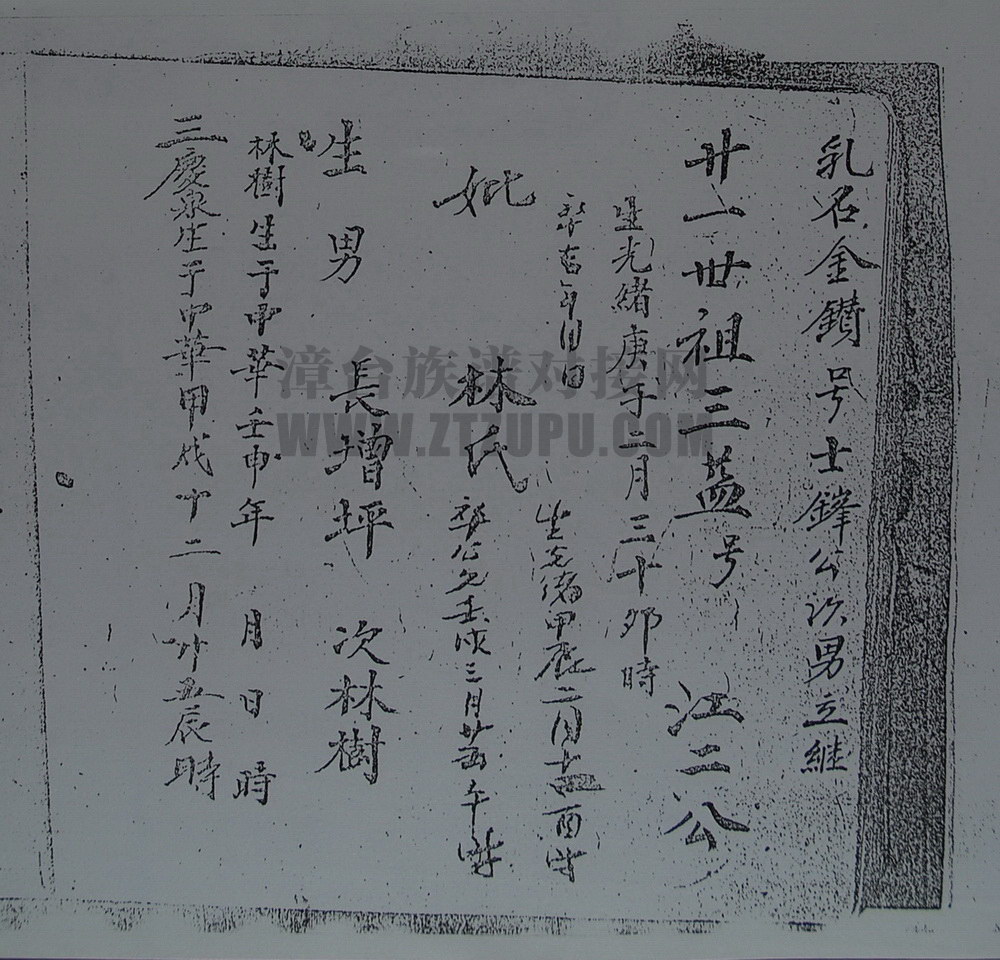 乳名金鑚号士鋒公次男立継
廿一世祖三益号 江二公
生光緒庚子二月三十卯時
年月日
妣 林氏
生光緒甲辰二月 酉时
公元壬戌三月廿四午时
生男 長增坪 次林樹
林樹生于中華壬申年 月 日 時
三慶泉生于中華甲戌十二月廿五辰時
漳台族谱对接网
WWW.ZTZUPU.COM